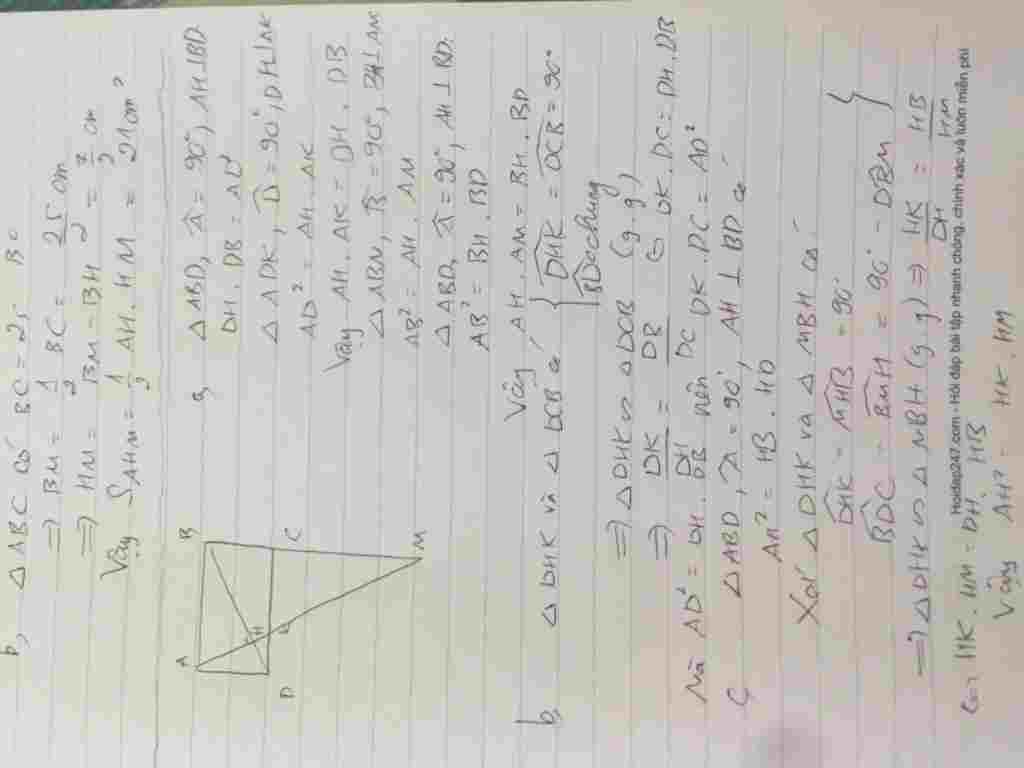 b, △ABC có BC = 25
⇒ BM = 1/2 BC = 25/2 cm
⇒ HM = BM - BH = 7/2 cm
Vậy S_AHM = 1/2 AH. HM = 21 cm²
A B C D H K M
a, △ABD, Â = 90°, AH⊥BD.
DH. DB = AD²
△ADK, D̂ = 90°, DH⊥AK
AD² = AH. AK
Vậy AH. AK = DH. DB
△ABM, B̂ = 90°, BH⊥AM
AB² = AH. AM
△ABD, Â = 90°, AH⊥BD.
AB² = BH. BD
Vậy AH. AM = BH. BD
b, △DHK và △DCB có { DHK = DCB = 90°
BDC chung
⇒ △DHK ∽ △DCB (g.g)
⇒ DK/DB = DH/DC ⇔ DK. DC = DH. DB
Mà AD² = DH. DB nên DK. DC = AD²
C, △ABD, Â = 90°, AH⊥BD có
AH² = HB. HD
Xét △DHK và △MBH có
DHK = MHB = 90°
BDC = BMH = 90° - DBM }
⇒ △DHK ∽ △MBH (g.g) ⇒ HK/DH = HB/HM
⇔ HK. HM = DH. HB
Vậy AH² = HK. HM
Hoidap247.com - Hỏi đáp bài tập nhanh chóng, chính xác và luôn miễn phí